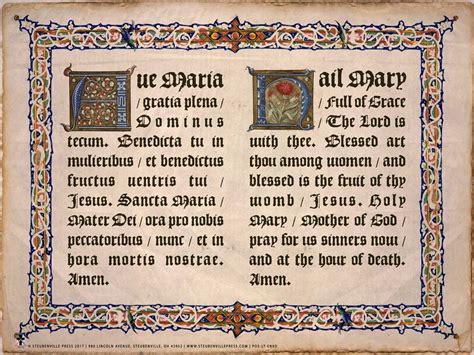 Aue Maria
/ gratia plena /
Dominus
tecum. Benedicta tu in
mulieribus / et benedictus
fructus uentris tui /
Jesus. Sancta Maria /
Mater Dei / ora pro nobis
peccatoribus / nunc / et in
hora mortis nostrae.
Amen.
Hail Mary
/ Full of Grace
/ The Lord is
with thee. Blessed art
thou among women / and
blessed is the fruit of thy
womb / Jesus. Holy
Mary / Mother of God /
pray for us sinners now /
and at the hour of death.
Amen.
© STEUBENVILLE PRESS 2017 | LINCOLN AVENUE, STEUBENVILLE, OH 43952 | WWW.STEUBENVILLEPRESS.COM